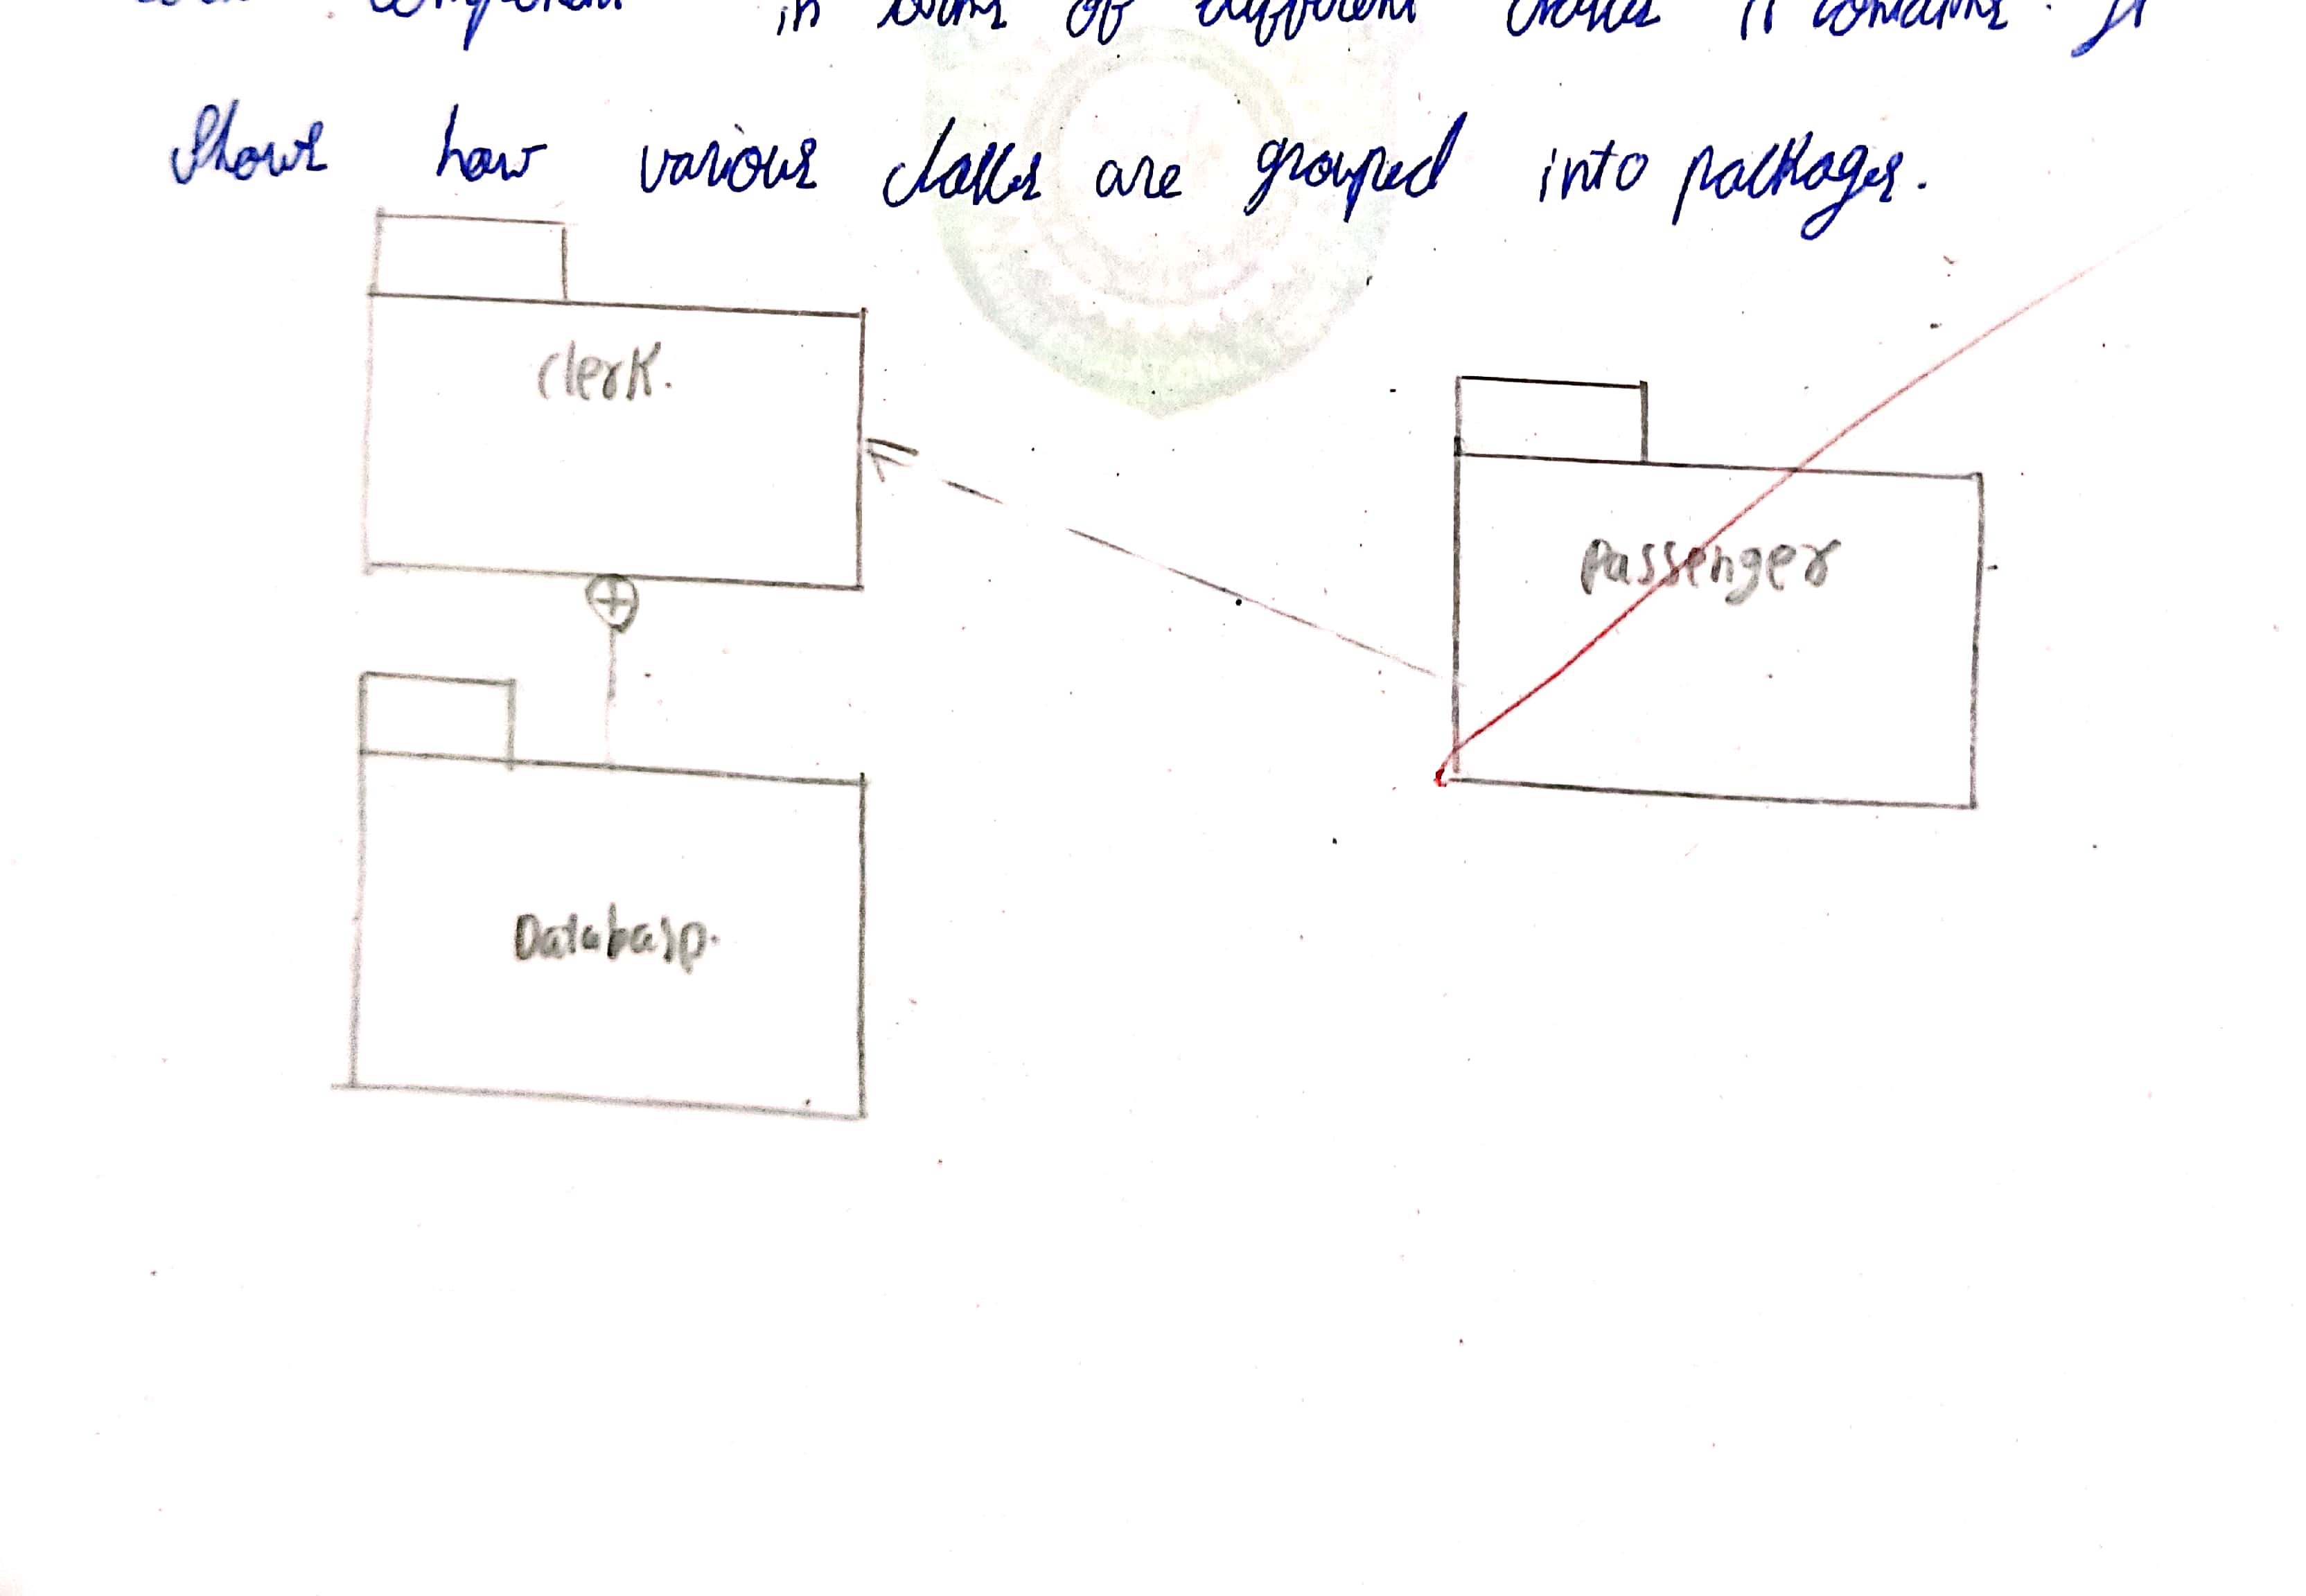 component in terms of different classes it contains. It
Shows how various classes are grouped into packages.
clerk.
passenger
Database.